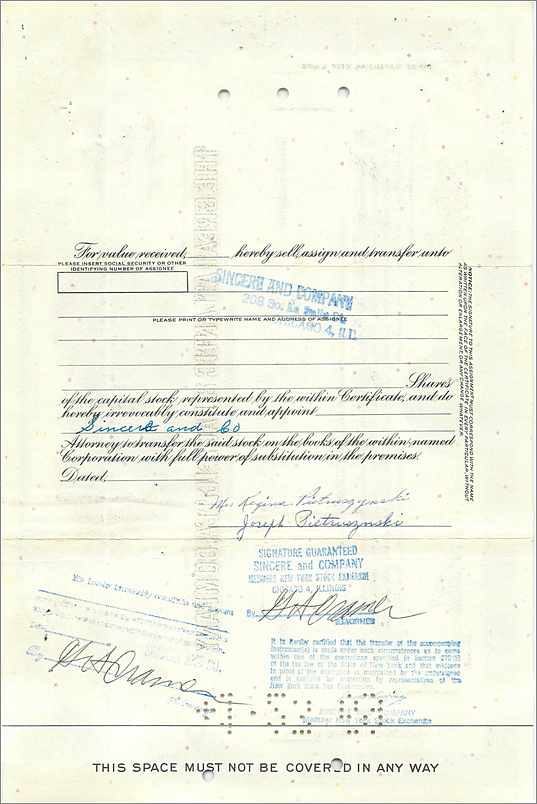 For value received, hereby sell, assign and transfer unto
PLEASE INSERT SOCIAL SECURITY OR OTHER
IDENTIFYING NUMBER OF ASSIGNEE
SINCERE AND COMPANY
208 So. La Salle St.
CHICAGO 4, ILL.
PLEASE PRINT OR TYPEWRITE NAME AND ADDRESS OF ASSIGNEE
Shares
of the capital stock represented by the within Certificate, and do
hereby irrevocably constitute and appoint
Sincere and Co
Attorney to transfer the said stock on the books of the within named
Corporation with full power of substitution in the premises.
Dated,
NOTICE: THE SIGNATURE TO THIS ASSIGNMENT MUST CORRESPOND WITH THE NAME
AS WRITTEN UPON THE FACE OF THE CERTIFICATE IN EVERY PARTICULAR, WITHOUT
ALTERATION OR ENLARGEMENT OR ANY CHANGE WHATEVER.
Mrs Regina Pietruszynski
Joseph Pietruszynski
SIGNATURE GUARANTEED
SINCERE and COMPANY
MEMBERS NEW YORK STOCK EXCHANGE
CHICAGO 4, ILLINOIS
By G A Cramer
It is hereby certified that the transfer of the accompanying
instrument(s) is made under such circumstances as to come
within one of the exemptions specified in Section 270(5)
of the tax law of the State of New York and that evidence
New York State Tax
COMPANY
Members New York Stock Exchange
By G A Cramer
THIS SPACE MUST NOT BE COVERED IN ANY WAY